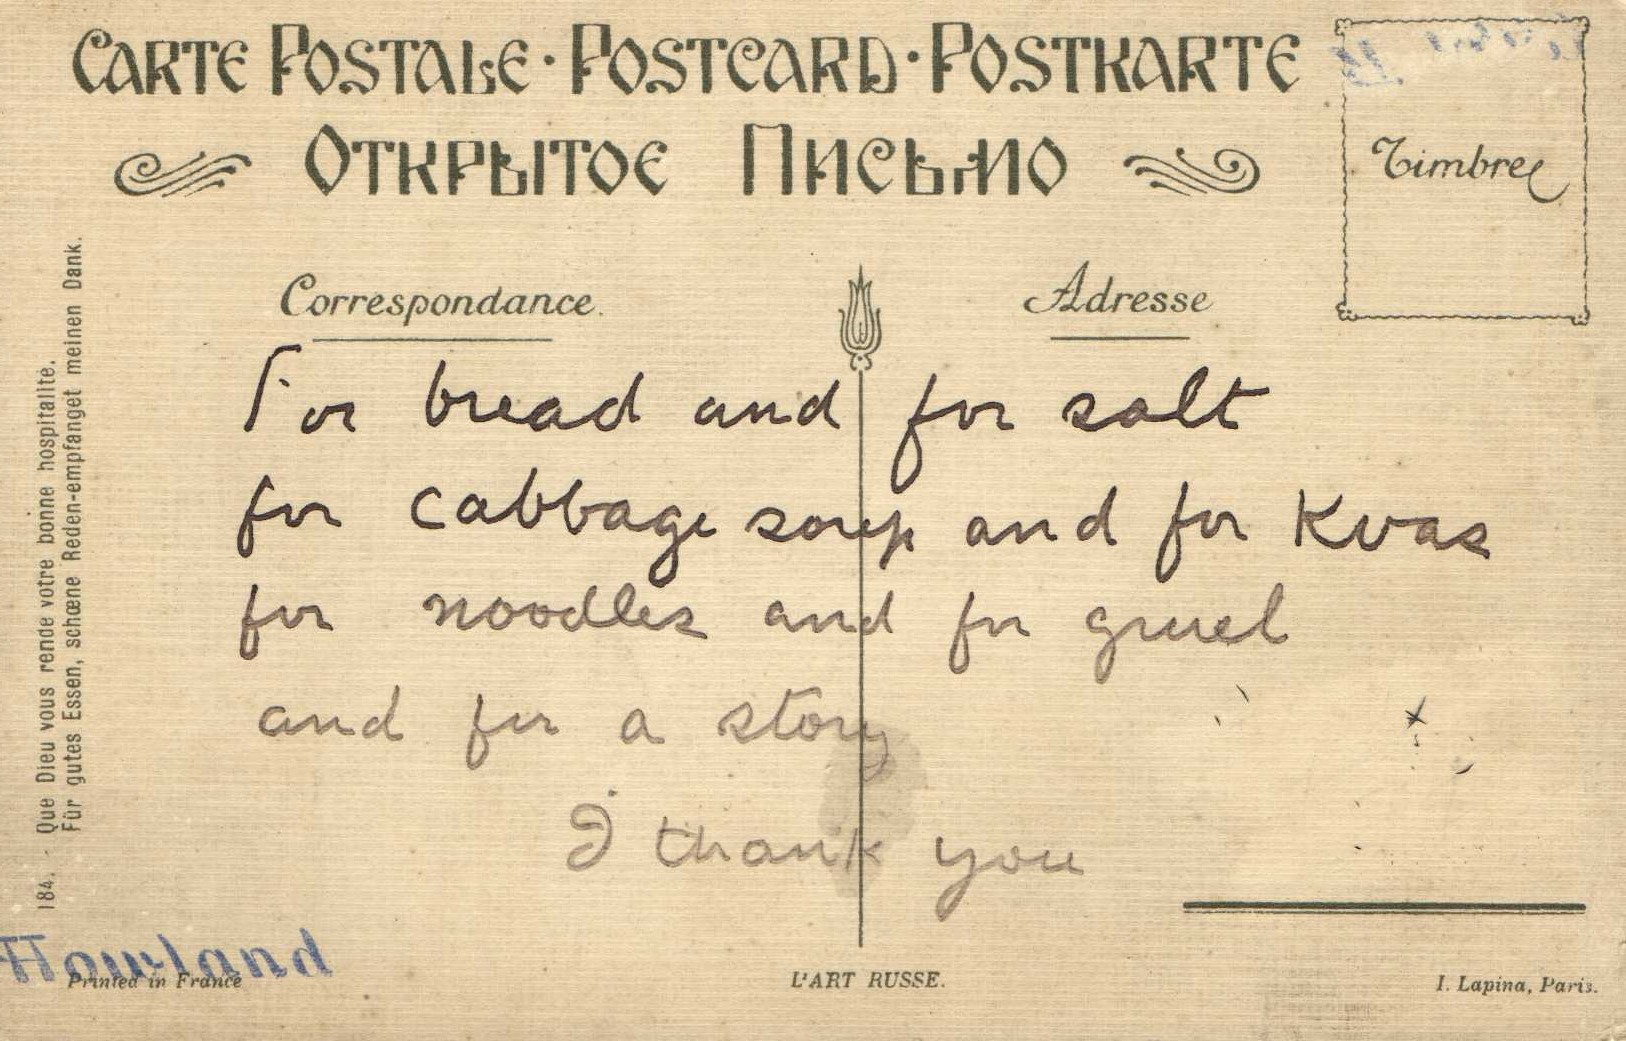 CARTE POSTALE · POSTCARD · POSTKARTE
ОТКРЫТОЕ ПИСЬМО
Timbre
Correspondance.
Adresse
For bread and for salt
for cabbage soup and for Kvas
for noodles and for gruel
and for a story
I thank you
184. - Que Dieu vous rende votre bonne hospitalité.
Für gutes Essen, schœne Reden-empfanget meinen Dank.
Howland
Printed in France
L'ART RUSSE.
I. Lapina, Paris.